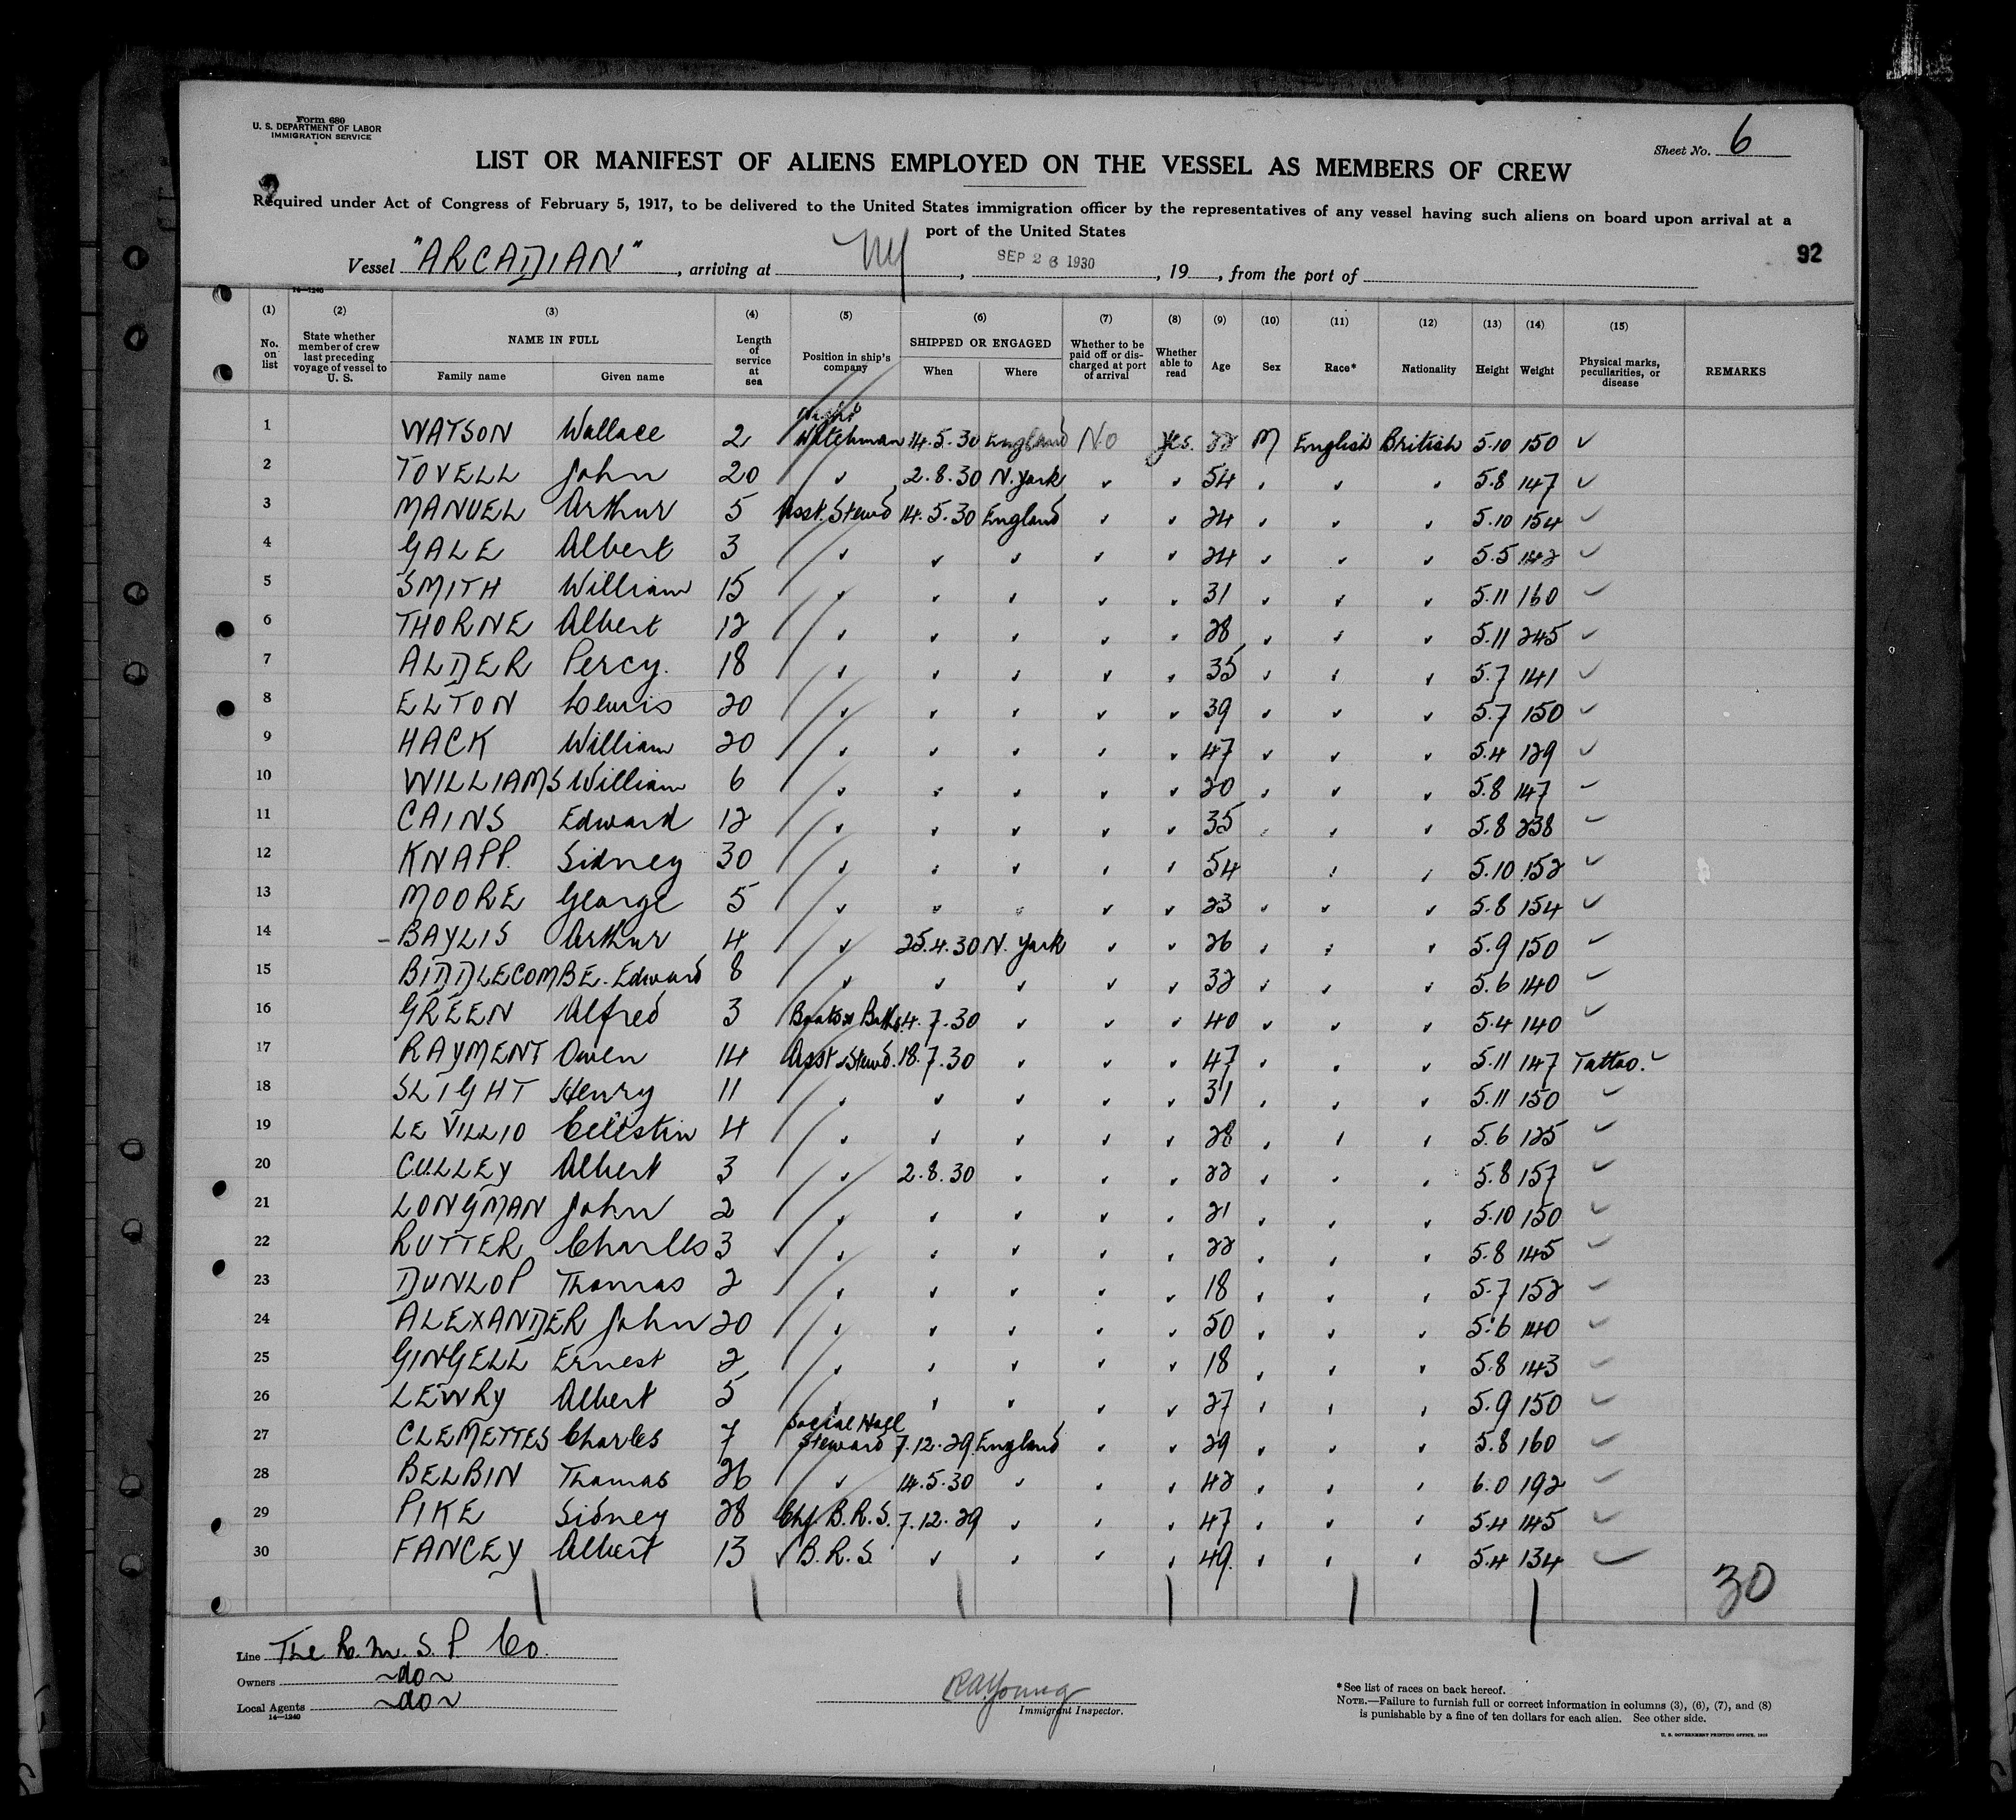 Form 680
U. S. DEPARTMENT OF LABOR
IMMIGRATION SERVICE
Sheet No. 6
LIST OR MANIFEST OF ALIENS EMPLOYED ON THE VESSEL AS MEMBERS OF CREW
Required under Act of Congress of February 5, 1917, to be delivered to the United States immigration officer by the representatives of any vessel having such aliens on board upon arrival at a
port of the United States
92
Vessel "ARCADIAN", arriving at NY, SEP 26 1930, 19, from the port of
14—1240
(1) (2) (3) (4) (5) (6) (7) (8) (9) (10) (11) (12) (13) (14) (15)
No. on list State whether member of crew last preceding voyage of vessel to U. S. NAME IN FULL Family name Given name Length of service at sea Position in ship's company SHIPPED OR ENGAGED When Where Whether to be paid off or discharged at port of arrival Whether able to read Age Sex Race* Nationality Height Weight Physical marks, peculiarities, or disease REMARKS
1 WATSON Wallace 2 Night Watchman 14.5.30 England No yes. 22 M English British 5.10 150 ✓
2 TOVELL John 20 ✓ 2.8.30 N. York ✓ ✓ 54 ✓ ✓ ✓ 5.8 147 ✓
3 MANUEL Arthur 5 Asst. Stewd 14.5.30 England ✓ ✓ 24 ✓ ✓ ✓ 5.10 154 ✓
4 GALE Albert 3 ✓ ✓ ✓ ✓ ✓ 24 ✓ ✓ ✓ 5.5 142 ✓
5 SMITH William 15 ✓ ✓ ✓ ✓ ✓ 31 ✓ ✓ ✓ 5.11 160 ✓
6 THORNE Albert 12 ✓ ✓ ✓ ✓ ✓ 28 ✓ ✓ ✓ 5.11 245 ✓
7 ALDER Percy. 18 ✓ ✓ ✓ ✓ ✓ 35 ✓ ✓ ✓ 5.7 141 ✓
8 ELTON Lewis 20 ✓ ✓ ✓ ✓ ✓ 39 ✓ ✓ ✓ 5.7 150 ✓
9 HACK William 20 ✓ ✓ ✓ ✓ ✓ 47 ✓ ✓ ✓ 5.4 129 ✓
10 WILLIAMS William 6 ✓ ✓ ✓ ✓ ✓ 20 ✓ ✓ ✓ 5.8 147 ✓
11 CAINS Edward 12 ✓ ✓ ✓ ✓ ✓ 35 ✓ ✓ ✓ 5.8 238 ✓
12 KNAPP. Sidney 30 ✓ ✓ ✓ ✓ ✓ 54 ✓ ✓ 5.10 152 ✓
13 MOORE George 5 ✓ ✓ ✓ ✓ ✓ 23 ✓ ✓ ✓ 5.8 154 ✓
14 BAYLIS Arthur 4 ✓ 25.4.30 N. York ✓ ✓ 26 ✓ ✓ ✓ 5.9 150 ✓
15 BIDDLECOMBE. Edward 8 ✓ ✓ ✓ ✓ ✓ 32 ✓ ✓ ✓ 5.6 140 ✓
16 GREEN Alfred 3 4.7.30 ✓ ✓ ✓ 40 ✓ ✓ ✓ 5.4 140 ✓
17 RAYMENT Owen 14 Asst Stewd. 18.7.30 ✓ ✓ ✓ 47 ✓ ✓ ✓ 5.11 147 Tattoo. ✓
18 SLIGHT Henry 11 ✓ ✓ ✓ ✓ ✓ 31 ✓ ✓ ✓ 5.11 150 ✓
19 LE VILLIO Celestin 4 ✓ ✓ ✓ ✓ ✓ 28 ✓ ✓ ✓ 5.6 125 ✓
20 CULLEY Albert 3 ✓ 2.8.30 ✓ ✓ ✓ 22 ✓ ✓ ✓ 5.8 157 ✓
21 LONGMAN John 2 ✓ ✓ ✓ ✓ ✓ 21 ✓ ✓ ✓ 5.10 150 ✓
22 RUTTER Charles 3 ✓ ✓ ✓ ✓ ✓ 22 ✓ ✓ ✓ 5.8 145 ✓
23 DUNLOP Thomas 2 ✓ ✓ ✓ ✓ ✓ 18 ✓ ✓ ✓ 5.7 152 ✓
24 ALEXANDER John 20 ✓ ✓ ✓ ✓ ✓ 50 ✓ ✓ ✓ 5.6 140 ✓
25 GINGELL Ernest 2 ✓ ✓ ✓ ✓ ✓ 18 ✓ ✓ ✓ 5.8 143 ✓
26 LEWRY Albert 5 ✓ ✓ ✓ ✓ ✓ 27 ✓ ✓ ✓ 5.9 150 ✓
27 CLEMETTES Charles 7 Social Hall Steward 7.12.29. England ✓ ✓ 29 ✓ ✓ ✓ 5.8 160 ✓
28 BELBIN Thomas 26 ✓ 14.5.30 ✓ ✓ ✓ 42 ✓ ✓ ✓ 6.0 192 ✓
29 PIKE Sidney 28 Chf. B.R.S. 7.12.29 ✓ ✓ ✓ 47 ✓ ✓ ✓ 5.4 145 ✓
30 FANCEY Albert 13 B.R.S. ✓ ✓ ✓ ✓ 49. ✓ ✓ ✓ 5.4 134 ✓
30
Line The R.M.S.P Co.
Owners ~do~
Local Agents ~do~
14—1240
RA Young
Immigrant Inspector.
*See list of races on back hereof.
NOTE.—Failure to furnish full or correct information in columns (3), (6), (7), and (8)
is punishable by a fine of ten dollars for each alien. See other side.